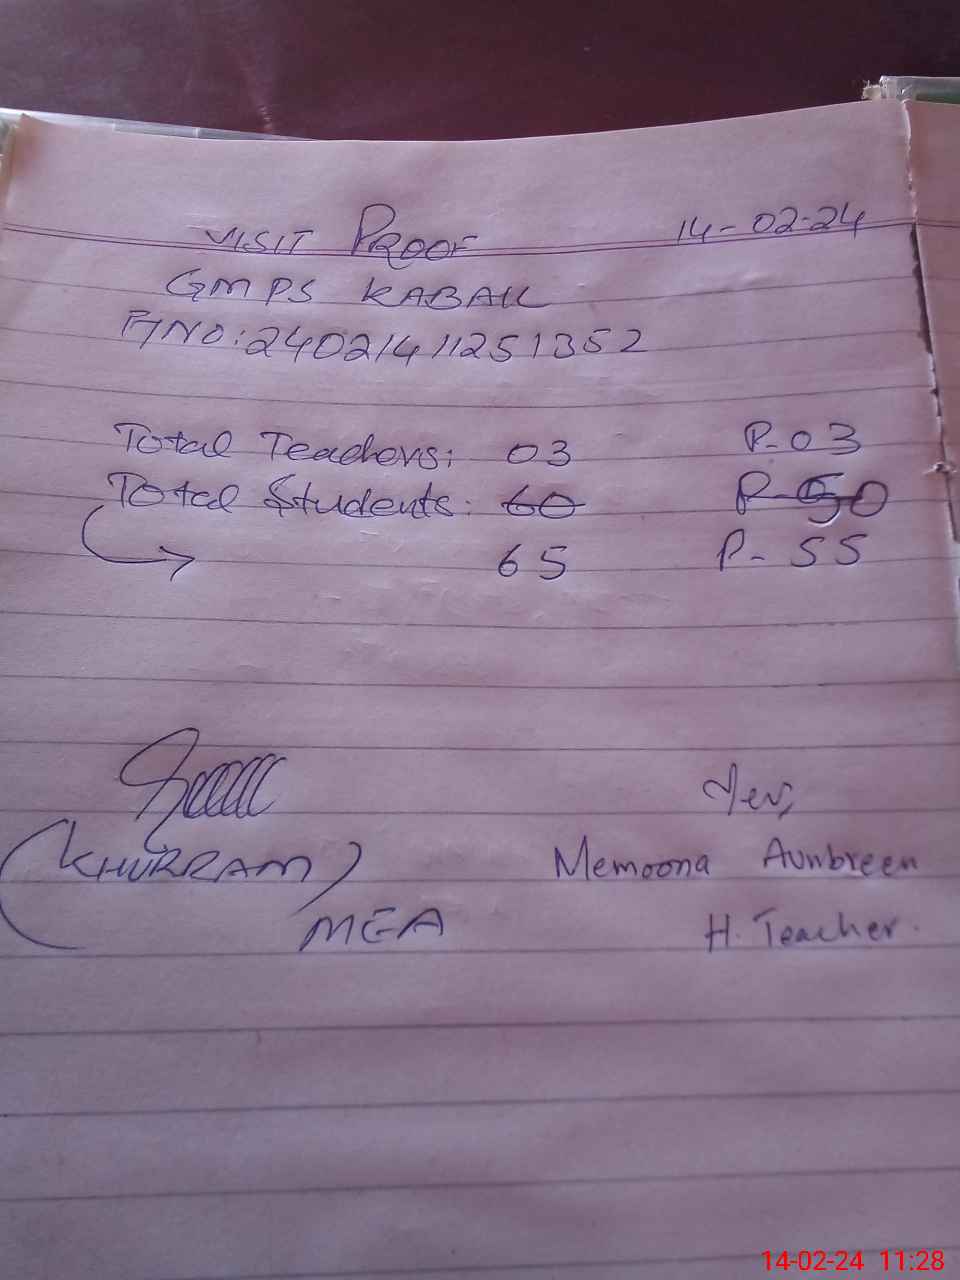 VISIT PROOF 14-02-24
GMPS KABAIL
P/NO: 24021411251352
Total Teachers: 03 P-03
Total Students: 60 P-50
65 P-55
(KHURRAM)
MEA
Memoona Aumbreen
H. Teacher.
14-02-24 11:28